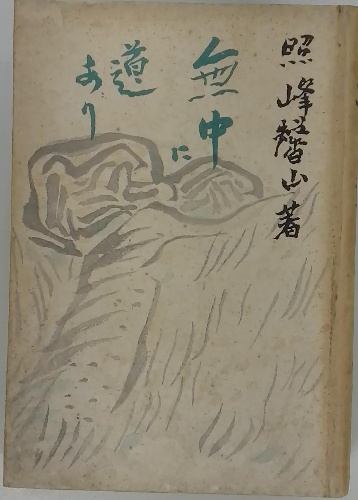 照峰馨山著
無中に
道
あり